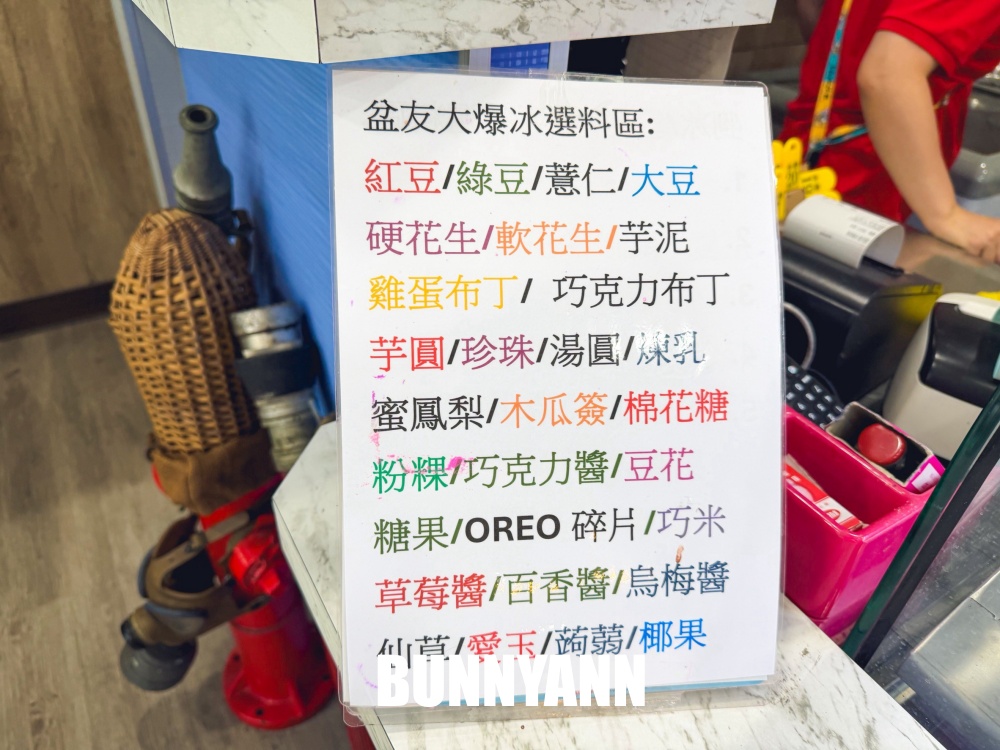 盆友大爆冰選料區:
紅豆/綠豆/薏仁/大豆
硬花生/軟花生/芋泥
雞蛋布丁/ 巧克力布丁
芋圓/珍珠/湯圓/煉乳
蜜鳳梨/木瓜簽/棉花糖
粉粿/巧克力醬/豆花
糖果/OREO 碎片/巧米
草莓醬/百香醬/烏梅醬
仙草/愛玉/蒟蒻/椰果
BUNNYANN